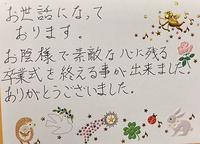 お世話になって
おります。
お陰様で素敵な心に残る
卒業式を終える事が出来ました。
ありがとうございました。